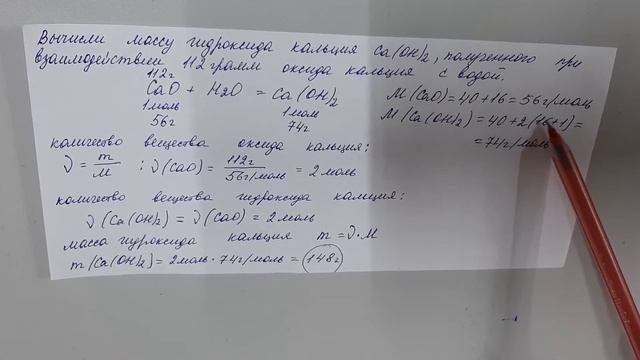 Вычисли массу гидроксида кальция Ca(OH)2, полученного при
взаимодействии 112 грамм оксида кальция с водой.
112г
CaO + H2O = Ca(OH)2
1моль 1моль
56г 74г
M(CaO)=40+16=56г/моль
M(Ca(OH)2)=40+2(16+1)=
=74г/моль
количество вещества оксида кальция:
ν = m/M ; ν(CaO) = 112г/56г/моль = 2моль
количество вещества гидроксида кальция:
ν(Ca(OH)2) = ν(CaO) = 2моль
масса гидроксида кальция m = ν·M
m(Ca(OH)2) = 2моль · 74г/моль = 148г